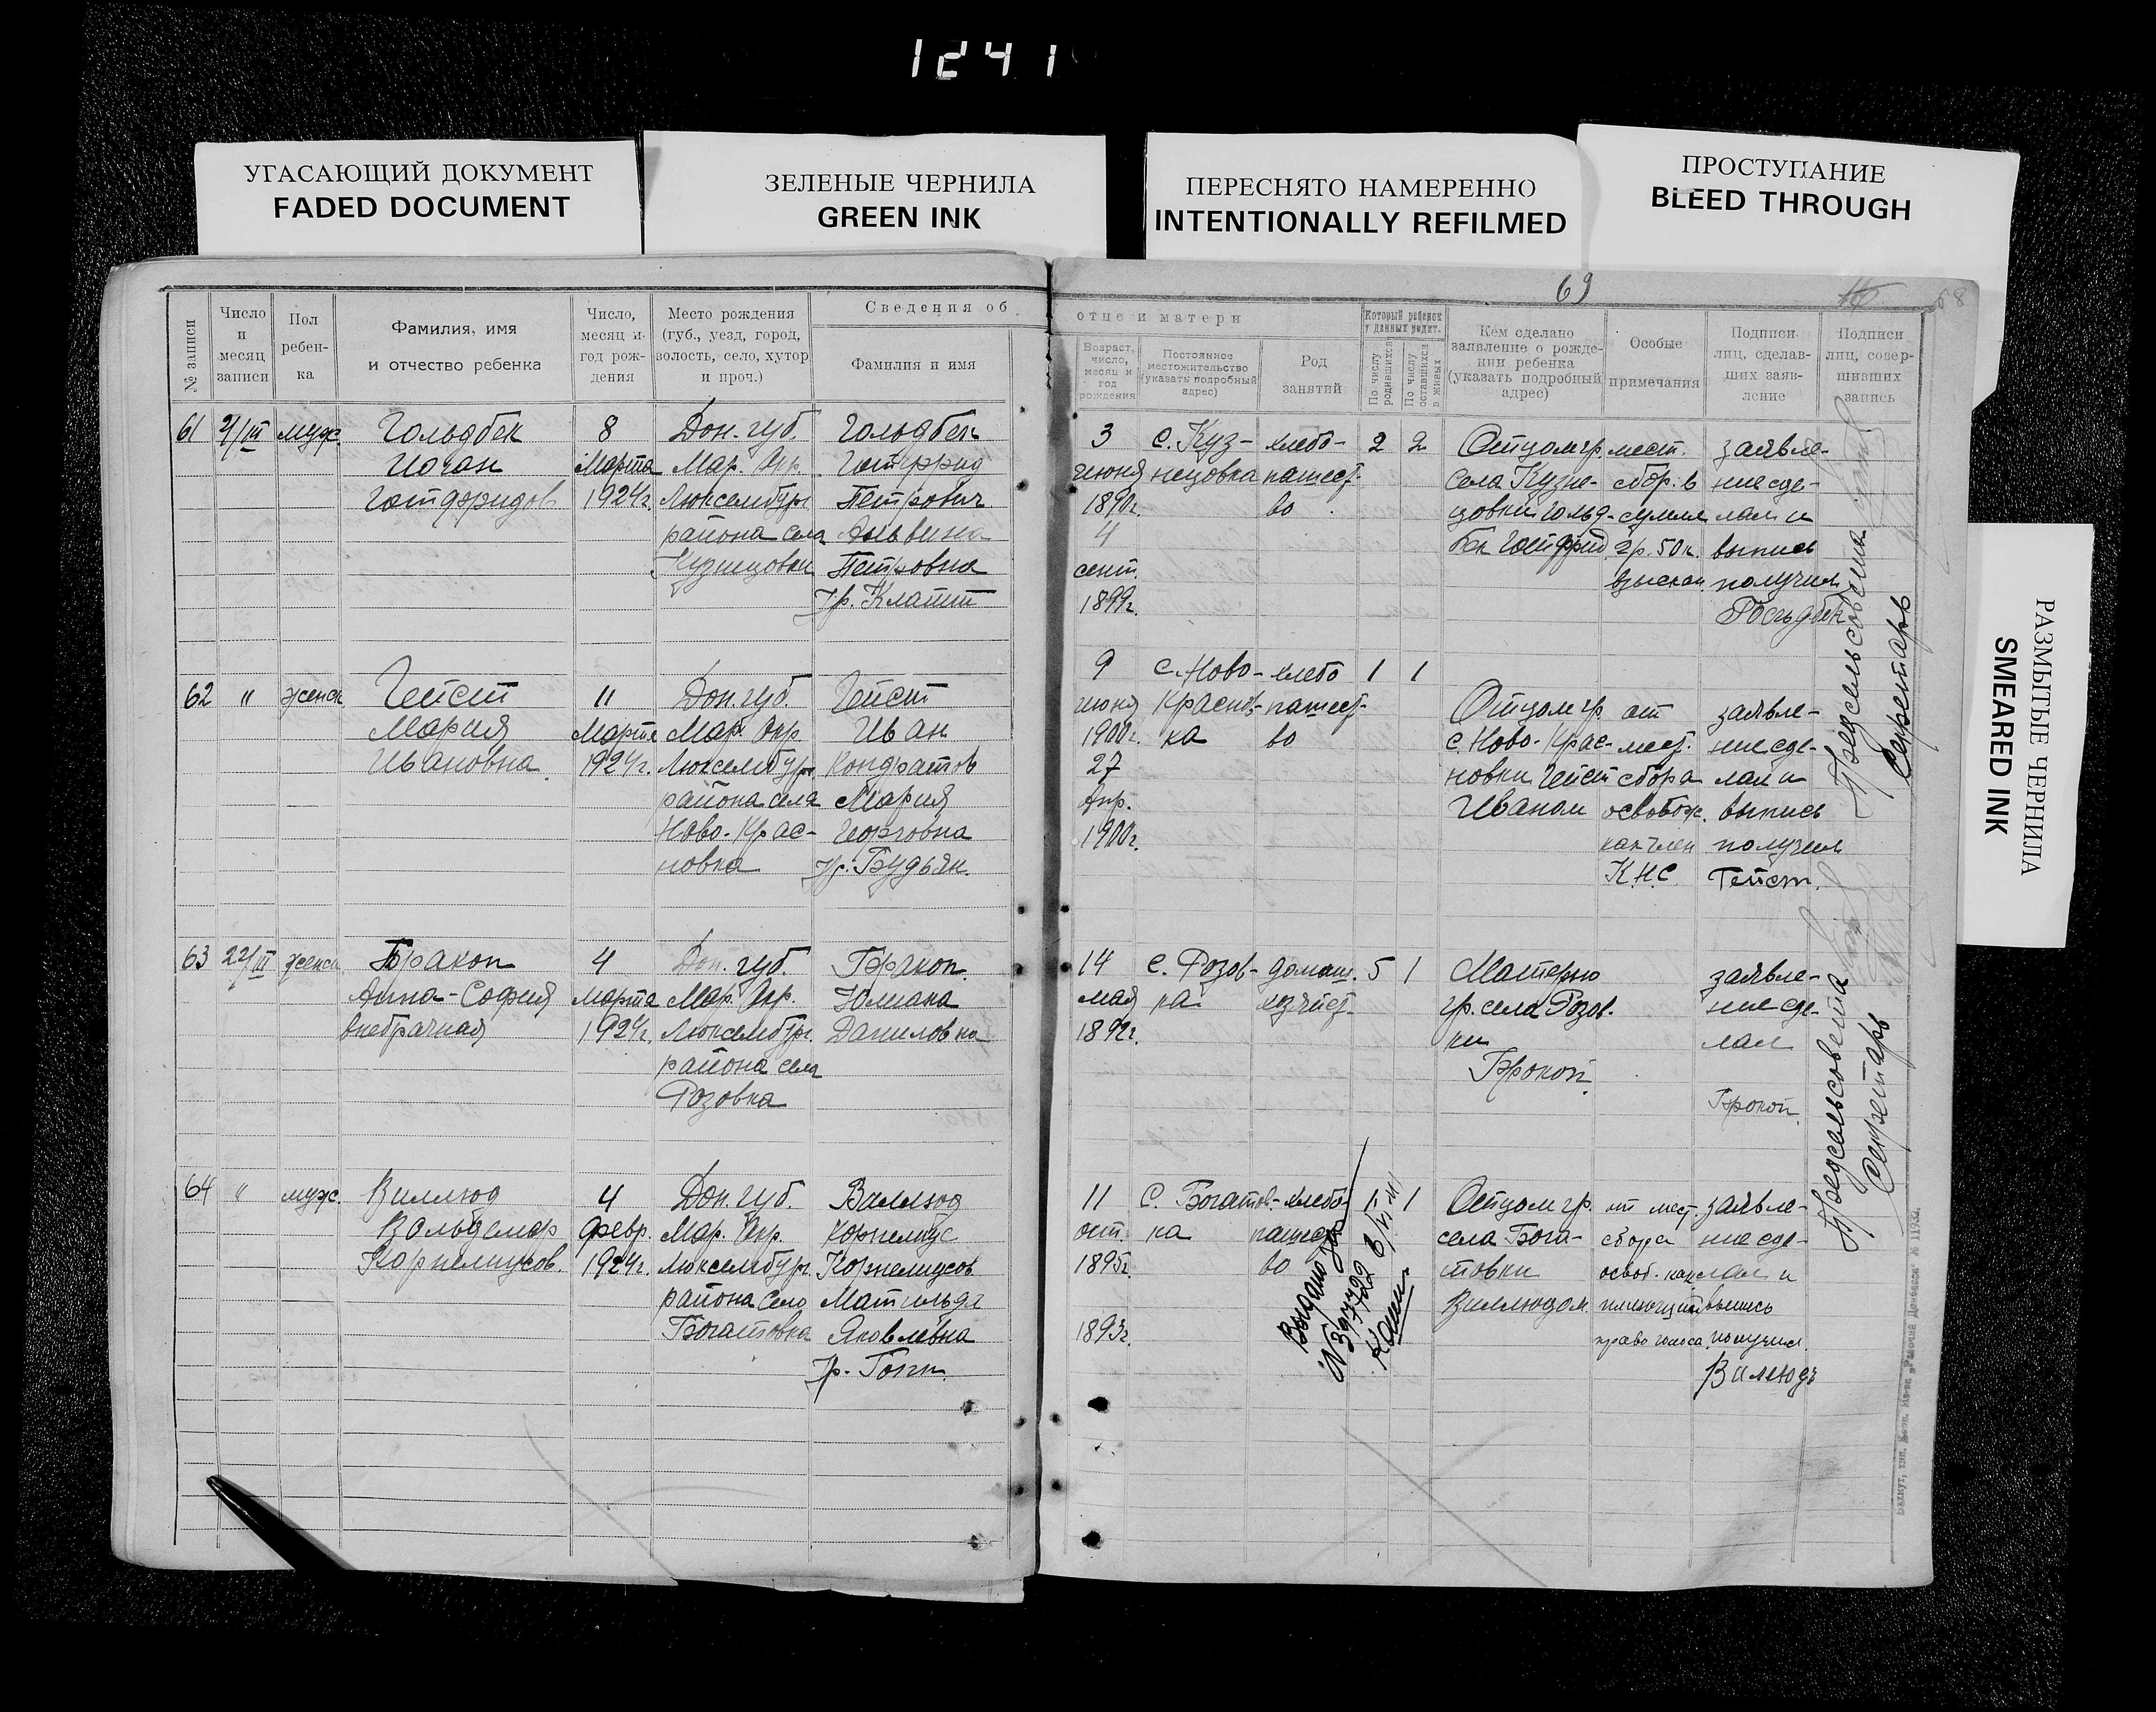 1241
УГАСАЮЩИЙ ДОКУМЕНТ
FADED DOCUMENT
ЗЕЛЕНЫЕ ЧЕРНИЛА
GREEN INK
ПЕРЕСНЯТО НАМЕРЕННО
INTENTIONALLY REFILMED
ПРОСТУПАНИЕ
BLEED THROUGH
РАЗМЫТЫЕ ЧЕРНИЛА
SMEARED INK
69
68
№ записи
Число
и
месяц
записи
Пол
ребен-
ка
Фамилия, имя
и отчество ребенка
Число,
месяц и
год рож-
дения
Место рождения
(губ., уезд, город,
волость, село, хутор
и проч.)
Сведения об
Фамилия и имя
отце и матери
Возраст,
число,
месяц и
год
рождения
Постоянное
местожительство
(указать подробный
адрес)
Род
занятий
Который ребенок
у данных родит.
По числу
родившихся
По числу
оставшихся
в живых
Кем сделано
заявление о рожде-
нии ребенка
(указать подробный
адрес)
Особые
примечания
Подписи
лиц, сделав-
ших заяв-
ление
Подписи
лиц, совер-
шивших
запись
61
21/III
муж.
Гольдбек
Иоган
Готфридов
8
Марта
1924г.
Дон. губ.
Мар. Окр.
Люксембург
района села
Кузнецовки
Гольдбек
Готфрид
Петрович
Альвина
Петровна
Ур. Клатт
3
июня
1890г.
4
сент.
1899г.
с. Куз-
нецовка
хлебо-
пашест-
во
2
2
Отцом гр.
села Кузне-
цовки Гольд-
бек Готфрид
мест.
сбор. в
сумме
2р. 50к.
взыскан.
заявле-
ние сде-
лал и
выпись
получил
62
"
женск
Гейст
Мария
Ивановна
11
Марта
1924г.
Дон. губ.
Мар. Окр.
Люксембург
района села
Ново-Крас-
новка
Гейст
Иван
Кондратов
Мария
Георговна
9
июня
1900г.
27
Апр.
1900г.
с. Ново-
Красно-
ка
хлебо
пашест-
во
1
1
Отцом гр.
с. Ново-Крас-
новки Гейст
Иваном
от
мест.
сбора
освобож.
как член
К.Н.С
заявле-
ние сде-
лал и
выпись
получил
Гейст.
Предсельсовета
Секретарь
63
22/III
женск
Бракоп
Анна-София
внебрачная
4
Марта
1924г.
Дон. губ.
Мар. Окр.
Люксембург.
района села
Розовка
Бракоп.
Юлиана
Даниловна
14
мая
1892г.
с. Розов-
ка
домаш.
хозяйст-
5
1
Матерью
гр. села Розов.
ки
заявле-
ние сде-
лал
64
"
муж.
Виллюд
Вальдемар
Корнелиусов.
4
Февр.
1924г.
Дон. губ.
Мар. Окр.
Люксембург.
района село
Богатовка
Виллюд
Корнелиус
Корнелиусов
Матильда
Яковлевна
11
окт.
1895г.
1893г.
С. Богатов-
ка
хлебо-
пашест-
во
1
1
Выдано
Отцом гр.
села Бога-
товки
Виллюдом
от мест.
сбора
освоб. как
имеющий
право голоса
заявле-
ние сде-
лал и
выпись
получил.
Вилюдъ
Предсельсовета
Секретарь